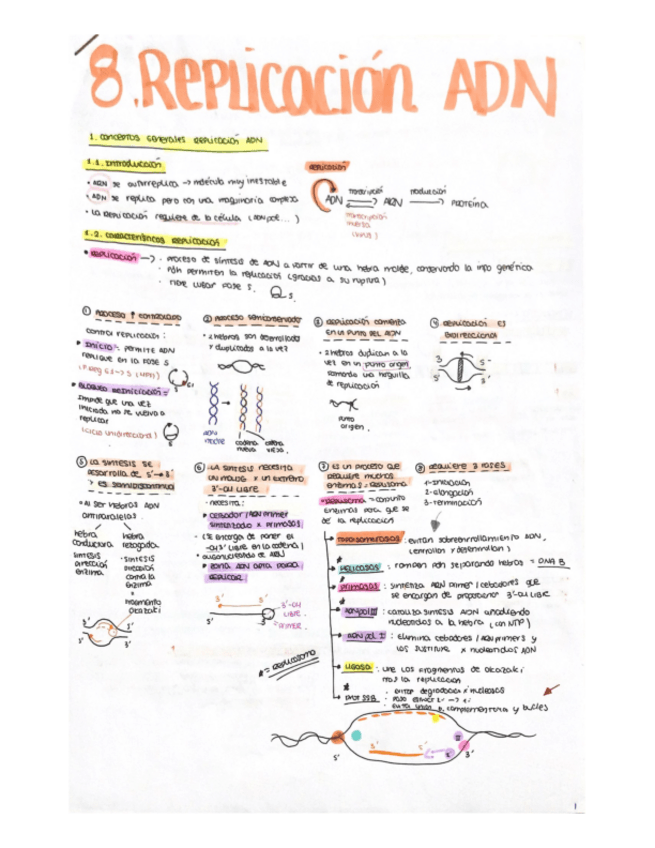 8. Replicación ADN
1. conceptos generales replicación ADN
1.1. Introducción
• ARN se autorreplica → molécula muy inestable
• ADN se replica pero con una maquinaria compleja
• La replicación requiere de la célula (ADN pol...)
replicación
ADN
transcripción
ARN
traducción
proteína
transcripción
inversa
(virus)
1.2. características replicación
• Replicación → • proceso de síntesis de ADN a partir de una hebra molde, conservando la info genética.
• PdH permiten la replicación (gracias a su ruptura)
• tiene lugar fase S.
S.
① proceso controlado
control replicación:
• Inicio: permite ADN
replique en la fase S
• Bloqueo reiniciación:
impide que una vez
iniciada no se vuelva a
replicar
(ciclo unidireccional)
② proceso semiconservador
• 2 hebras son desenrolladas
y duplicadas a la vez
ADN
madre
cadena
nueva
cadena
vieja.
③ replicación comienza
en un punto del ADN
• 2 hebras duplican a la
vez en un punto origen,
formando una horquilla
de replicación
punto
origen.
④ replicación es
bidireccional
3'
5'
5'
3'
⑤ La síntesis se
desarrolla de 5'→3'
> es semidiscontinua
• Al ser hebras ADN
antiparalelas.
hebra
conductora
síntesis
dirección
enzima
hebra
retrasada
• síntesis
dirección
contra la
enzima
+
fragmento
okazaki
3'
5'
5'
3'
⑥ La síntesis necesita
un molde y un extremo
3'-OH libre
• necesita:
• cebador/ARN primer
sintetizado x primasas
(se encarga de poner el
-OH 3' libre en la cadena)
• zona ADN apta para
replicar
3'
5'
3'-OH
libre.
primer.
5'
3'
* = replisoma
⑦ es un proceso que
requiere muchos
enzimas = replisoma
• replisoma → conjunto
enzimas para que se
dé la replicación
⑧ requiere 3 fases
1- iniciación
2- elongación
3- terminación
topoisomerasas: evitan sobreenrollamiento ADN,
(enrollan y desenrollan)
* Helicasas: rompen pdH separando hebras = DNA B
* primasas: sintetiza ARN primer/cebadores que
se encargan de proporcionar 3'-OH libre
* ADN pol III: cataliza síntesis ADN añadiendo
nucleótidos a la hebra (con NTP)
* ADN pol I: elimina cebadores/ARN primers y
los sustituye x nucleótidos ADN
Ligasa: une los fragmentos de okazaki
tras la replicación
* prot SSB: • evitar degradación x nucleasas
5'
3'
5'
3'
III
I
1